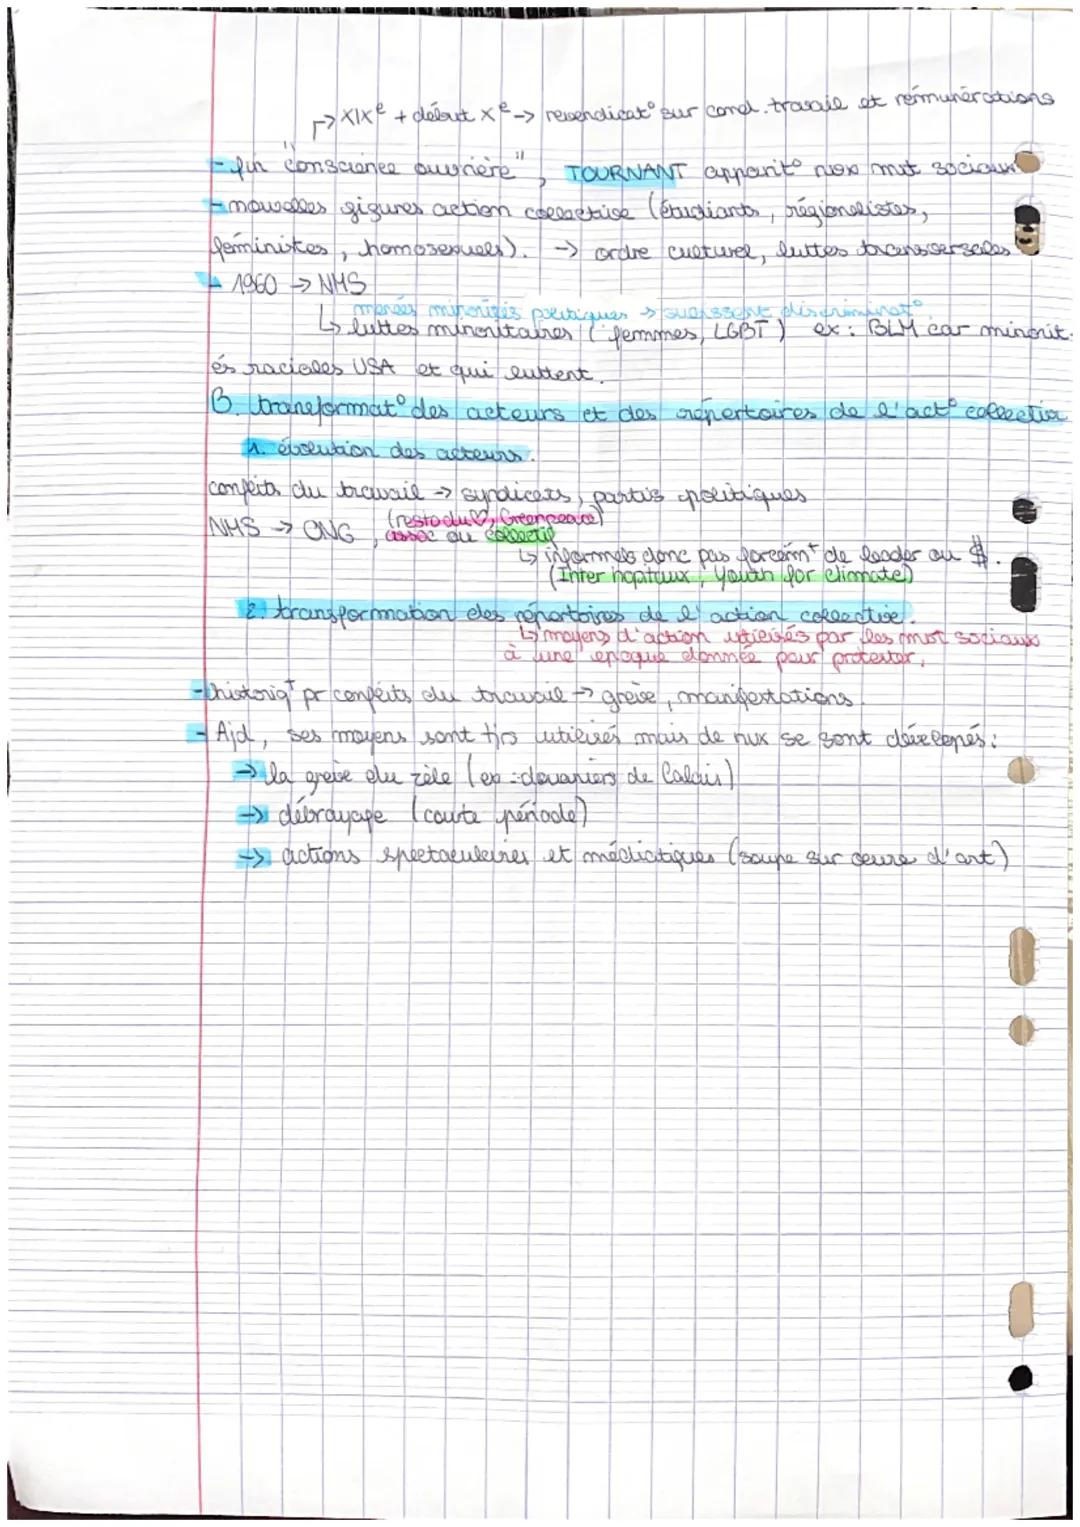 ↱ XIXe + début Xe → revendicat° sur cond. travail et rémunérations
- fin "conscience ouvrière", TOURNANT apparit° nvx mvt sociaux
- nouvelles figures action collective (étudiants, régionalistes,
féministes, homosexuels). → ordre culturel, luttes transversales
- 1960 → NMS
menées minorités politiques → subissent discriminat°
↳ luttes minoritaires (femmes, LGBT) ex : BLM car minorit-
és raciales USA et qui luttent.
B. transformat° des acteurs et des répertoires de l'act° collective
1. évolution des acteurs.
conflits du travail → syndicats, partis politiques
(resto du ♡, Greenpeace)
NMS → ONG, assoc ou collectif
↳ informels donc pas forcémt de leader ou $.
(Inter hopitaux, Youth for climate)
2. transformation des répertoires de l'action collective.
↳ moyens d'action utilisés par les mvt sociaux
à une époque donnée pour protester,
- historiqt pr conflits du travail → grève, manifestations.
- Ajd, ses moyens sont tjrs utilisés mais de nvx se sont développés :
→ la grève du zèle (ex : douaniers de Calais)
→ débrayage (courte période)
→ actions spectaculaires et médiatiques (soupe sur œuvre d'art)